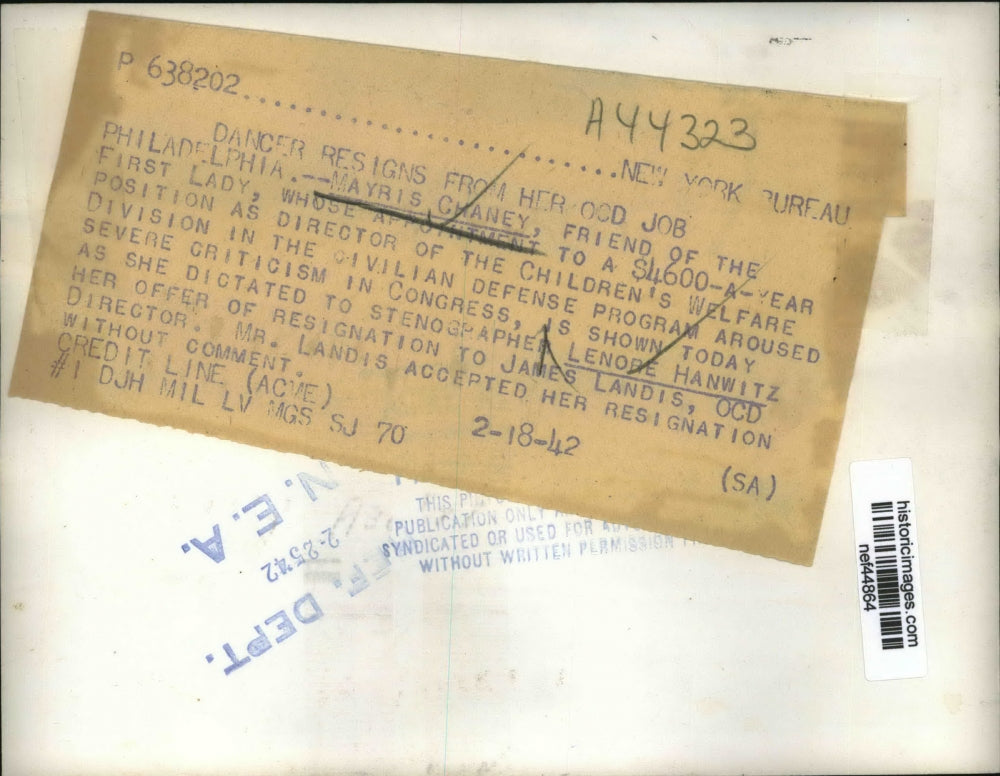 P 638202
A44323
NEW YORK BUREAU
DANCER RESIGNS FROM HER OCD JOB
PHILADELPHIA.--MAYRIS CHANEY, FRIEND OF THE
FIRST LADY, WHOSE APPOINTMENT TO A $4600-A-YEAR
POSITION AS DIRECTOR OF THE CHILDREN'S WELFARE
DIVISION IN THE CIVILIAN DEFENSE PROGRAM AROUSED
SEVERE CRITICISM IN CONGRESS, IS SHOWN TODAY
AS SHE DICTATED TO STENOGRAPHER LENORE HANWITZ
HER OFFER OF RESIGNATION TO JAMES LANDIS, OCD
DIRECTOR. MR. LANDIS ACCEPTED HER RESIGNATION
WITHOUT COMMENT.
CREDIT LINE (ACME)
#1 DJH MIL LV MGS SJ 70 2-18-42
(SA)
N. E. A.
DEPT.
THIS
PUBLICATION ONLY
SYNDICATED OR USED FOR
WITHOUT WRITTEN PERMISSION
historicimages.com
nef44864